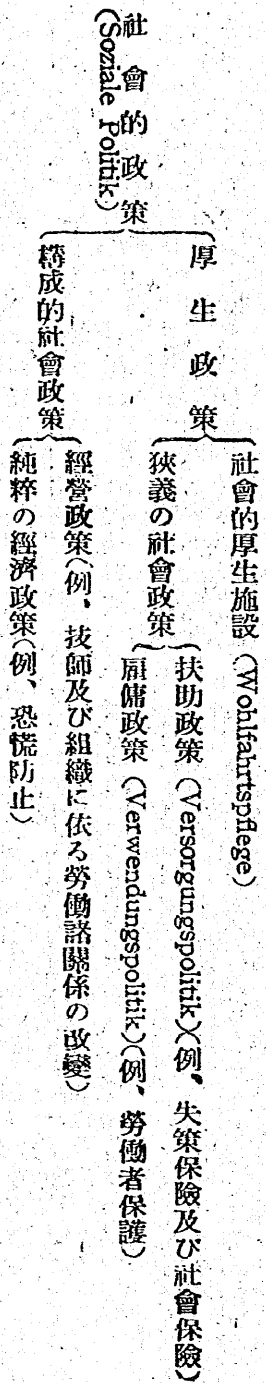 社會的政策
(Soziale Politik)
厚生政策
社會的厚生施設(Wohlfahrtspflege)
狹義の社會政策
扶助政策(Versorgungspolitik)(例、失策保險及び社會保險)
雇傭政策(Verwendungspolitik)(例、勞働者保護)
構成的社會政策
經營政策(例、技師及び組織に依る勞働諸關係の改變)
純粹の經濟政策(例、恐慌防止)